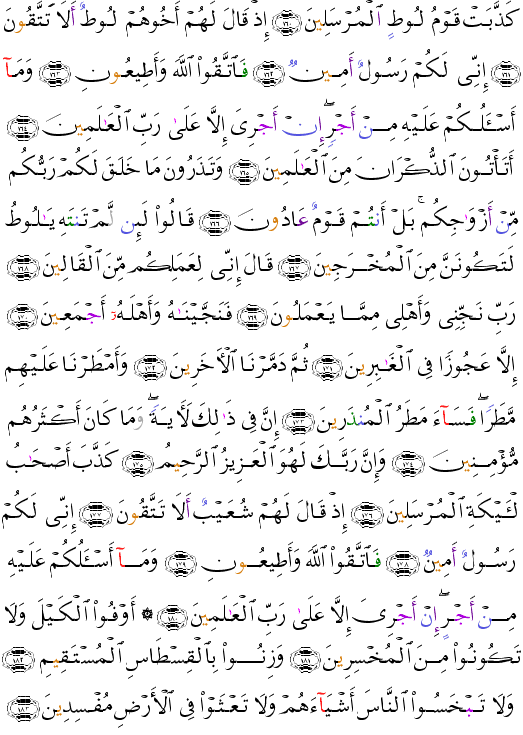 كَذَّبَتْ قَوْمُ لُوطٍ ٱلْمُرْسَلِينَ ﴿١٦٠﴾ إِذْ قَالَ لَهُمْ أَخُوهُمْ لُوطٌ أَلَا تَتَّقُونَ
﴿١٦١﴾ إِنِّى لَكُمْ رَسُولٌ أَمِينٌ ﴿١٦٢﴾ فَٱتَّقُوا۟ ٱللَّهَ وَأَطِيعُونِ ﴿١٦٣﴾ وَمَآ
أَسْـَٔلُكُمْ عَلَيْهِ مِنْ أَجْرٍ ۖ إِنْ أَجْرِىَ إِلَّا عَلَىٰ رَبِّ ٱلْعَـٰلَمِينَ ﴿١٦٤﴾
أَتَأْتُونَ ٱلذُّكْرَانَ مِنَ ٱلْعَـٰلَمِينَ ﴿١٦٥﴾ وَتَذَرُونَ مَا خَلَقَ لَكُمْ رَبُّكُم
مِّنْ أَزْوَٰجِكُم ۚ بَلْ أَنتُمْ قَوْمٌ عَادُونَ ﴿١٦٦﴾ قَالُوا۟ لَئِن لَّمْ تَنتَهِ يَـٰلُوطُ
لَتَكُونَنَّ مِنَ ٱلْمُخْرَجِينَ ﴿١٦٧﴾ قَالَ إِنِّى لِعَمَلِكُم مِّنَ ٱلْقَالِينَ ﴿١٦٨﴾
رَبِّ نَجِّنِى وَأَهْلِى مِمَّا يَعْمَلُونَ ﴿١٦٩﴾ فَنَجَّيْنَـٰهُ وَأَهْلَهُۥٓ أَجْمَعِينَ ﴿١٧٠﴾
إِلَّا عَجُوزًا فِى ٱلْغَـٰبِرِينَ ﴿١٧١﴾ ثُمَّ دَمَّرْنَا ٱلْـَٔاخَرِينَ ﴿١٧٢﴾ وَأَمْطَرْنَا عَلَيْهِم
مَّطَرًا ۖ فَسَآءَ مَطَرُ ٱلْمُنذَرِينَ ﴿١٧٣﴾ إِنَّ فِى ذَٰلِكَ لَـَٔايَةً ۖ وَمَا كَانَ أَكْثَرُهُم
مُّؤْمِنِينَ ﴿١٧٤﴾ وَإِنَّ رَبَّكَ لَهُوَ ٱلْعَزِيزُ ٱلرَّحِيمُ ﴿١٧٥﴾ كَذَّبَ أَصْحَـٰبُ
لْـَٔيْكَةِ ٱلْمُرْسَلِينَ ﴿١٧٦﴾ إِذْ قَالَ لَهُمْ شُعَيْبٌ أَلَا تَتَّقُونَ ﴿١٧٧﴾ إِنِّى لَكُمْ
رَسُولٌ أَمِينٌ ﴿١٧٨﴾ فَٱتَّقُوا۟ ٱللَّهَ وَأَطِيعُونِ ﴿١٧٩﴾ وَمَآ أَسْـَٔلُكُمْ عَلَيْهِ
مِنْ أَجْرٍ ۖ إِنْ أَجْرِىَ إِلَّا عَلَىٰ رَبِّ ٱلْعَـٰلَمِينَ ﴿١٨٠﴾ ۞ أَوْفُوا۟ ٱلْكَيْلَ وَلَا
تَكُونُوا۟ مِنَ ٱلْمُخْسِرِينَ ﴿١٨١﴾ وَزِنُوا۟ بِٱلْقِسْطَاسِ ٱلْمُسْتَقِيمِ ﴿١٨٢﴾
وَلَا تَبْخَسُوا۟ ٱلنَّاسَ أَشْيَآءَهُمْ وَلَا تَعْثَوْا۟ فِى ٱلْأَرْضِ مُفْسِدِينَ ﴿١٨٣﴾